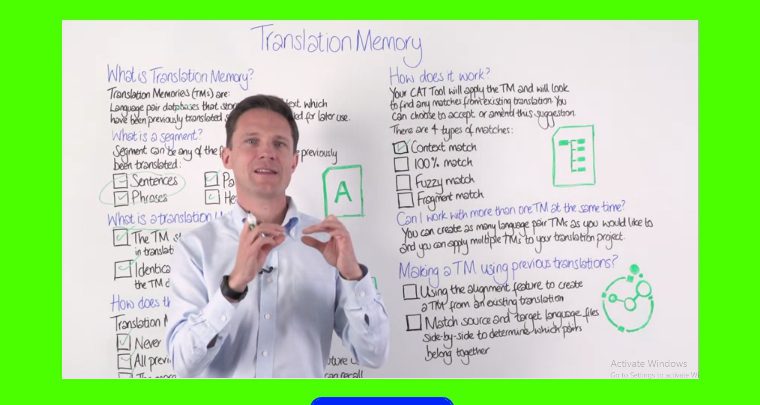 Translation Memory
What is Translation Memory?
Translation Memories (TMs) are:
Language pair databases that
have been previously translated for later use.
What is a segment?
Segment can be any of the previously
been translated:
Sentences
Phrases
What is a translation
The TM
in translat
Identica
the TM d
How does th
Translation M
Never
All previ
can recall
How does it work?
Your CAT Tool will apply the TM and will look
to find any matches from existing translation. You
can choose to accept or amend this suggestion.
There are 4 types of matches:
Context match
100% match
Fuzzy match
Fragment match
A
Can I work with more than one TM at the same time?
You can create as many language pair TMs as you would like to
and you can apply multiple TMs to your translation project.
Making a TM using previous translations?
Using the alignment feature to create
a TM from an existing translation
Match source and target language files
side-by-side to determine which pairs
belong together
Activate Windows
Go to Settings to activate W